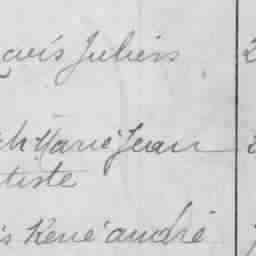 ouis Julien
h Marie Jean
tiste
s René André